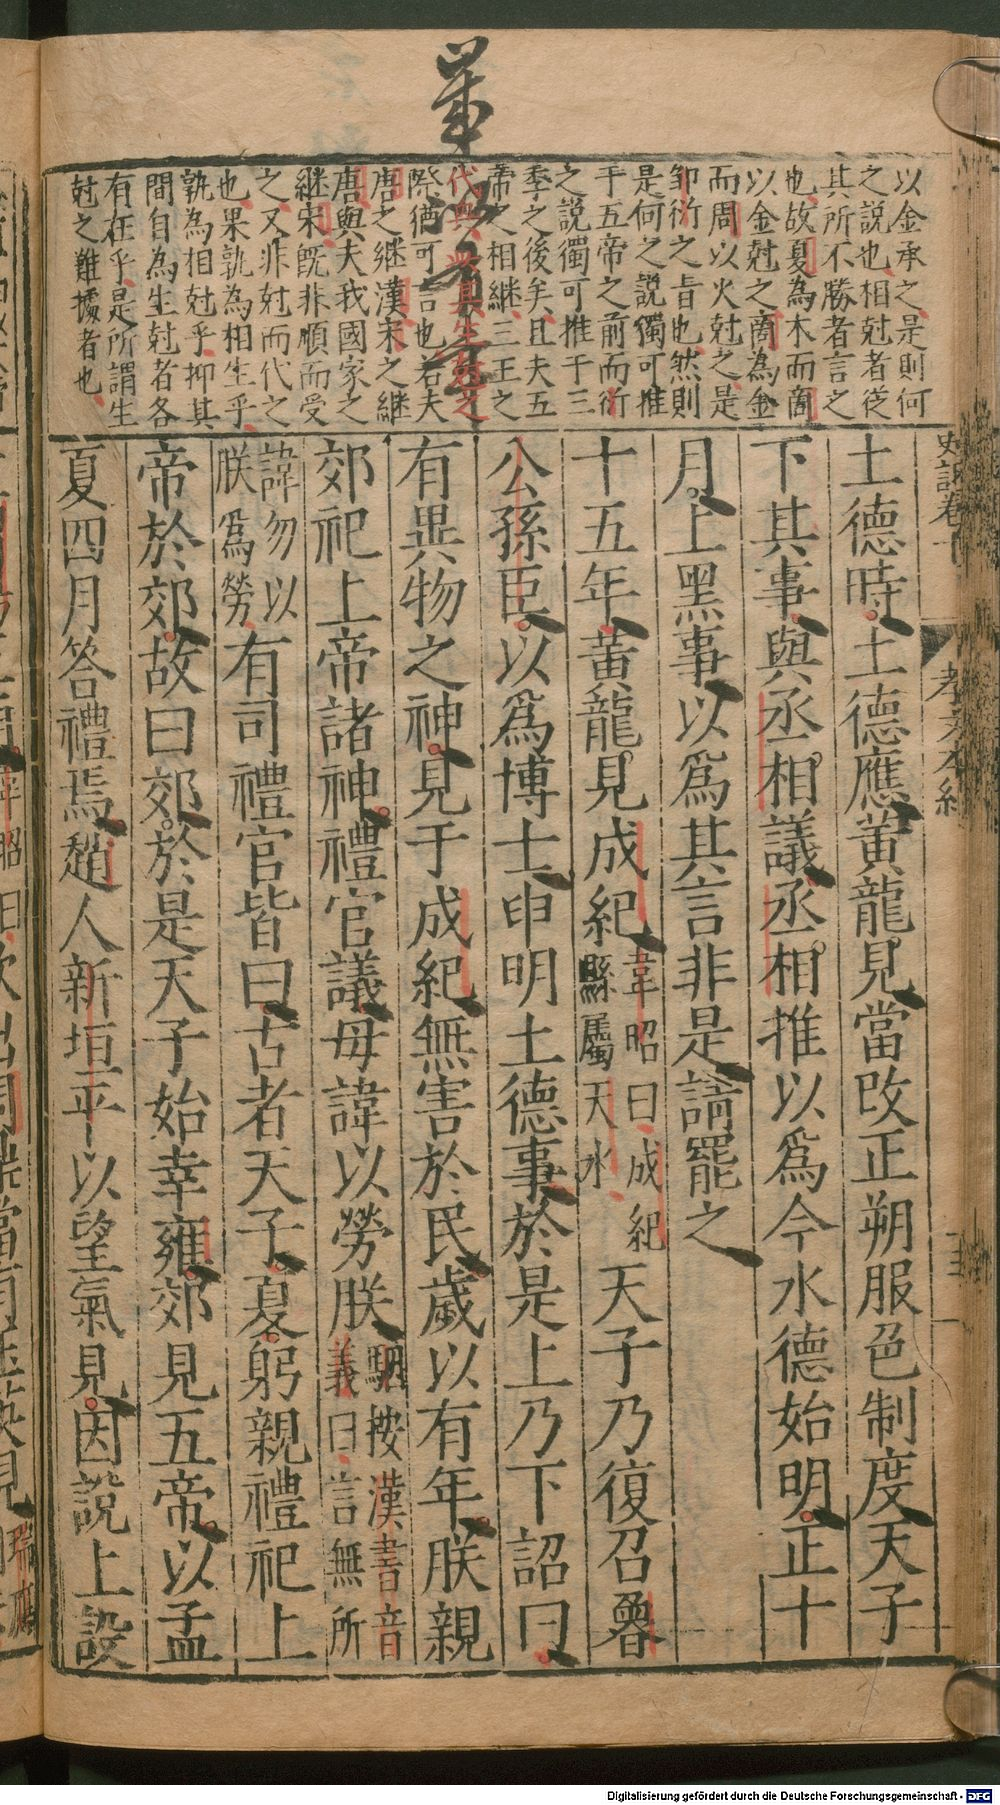 以金承之是則何
之說也相尅者從
其所不勝者言之
也故夏為木而商
以金尅之商為金
而周以火尅之是
鄒衍之旨也然則
是何之說獨可推
于五帝之前而衍
之說獨可推于三
季之後矣且夫五
帝之相繼三王之
代興以其生尅之
際猶可言也若夫
唐之繼漢宋之繼
唐與夫我國家之
繼宋既非順而受
之又非尅而代之
也果孰為相生乎
孰為相尅乎抑其
間自為生尅者各
有在乎是所謂生
尅之難據者也
史記卷十
孝文本紀
土德時土德應黃龍見當改正朔服色制度天子
下其事與丞相議丞相推以爲今水德始明正十
月上黑事以爲其言非是請罷之
十五年黃龍見成紀
韋昭曰成紀
縣屬天水
天子乃復召魯
公孫臣以爲博士申明土德事於是上乃下詔曰
有異物之神見于成紀無害於民歲以有年朕親
郊祀上帝諸神禮官議毋諱以勞朕
駰按漢書音
義曰言無所
諱勿以
朕爲勞
有司禮官皆曰古者天子夏躬親禮祀上
帝於郊故曰郊於是天子始幸雍郊見五帝以孟
夏四月答禮焉趙人新垣平以望氣見因說上設
Digitalisierung gefördert durch die Deutsche Forschungsgemeinschaft - DFG